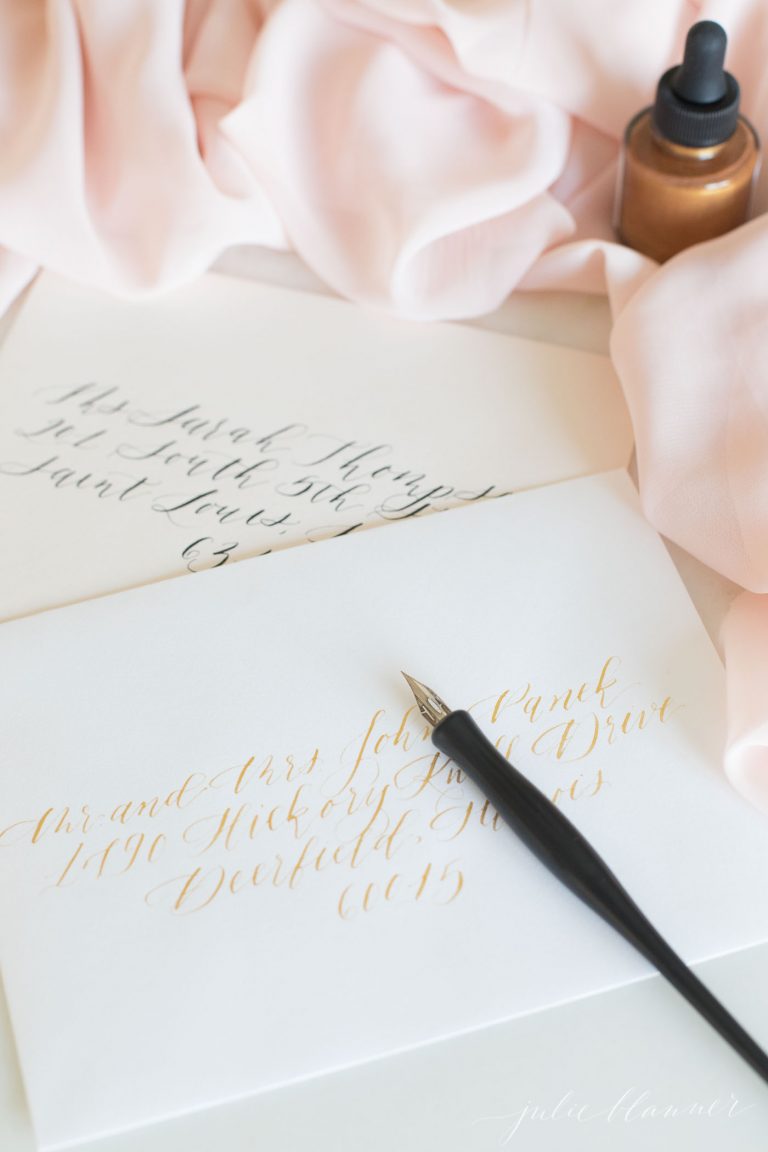 Ms Sarah Thomps
South 5th
Saint Louis,
63
Mr. and Mrs. John Panek
Hickory Knoll Drive
Deerfield, Illinois
60015
julie blanner